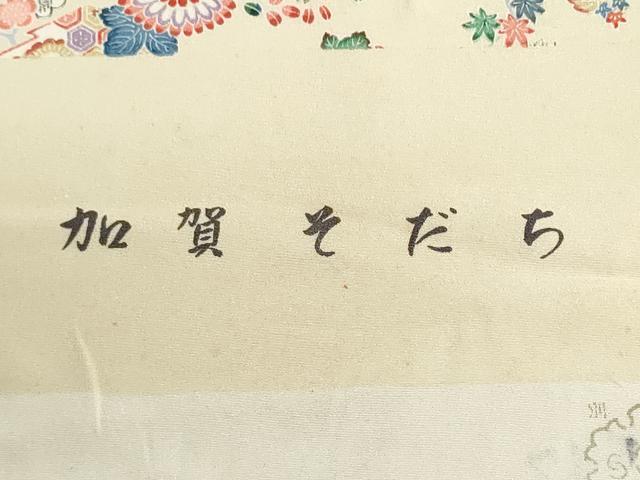 加賀そだち